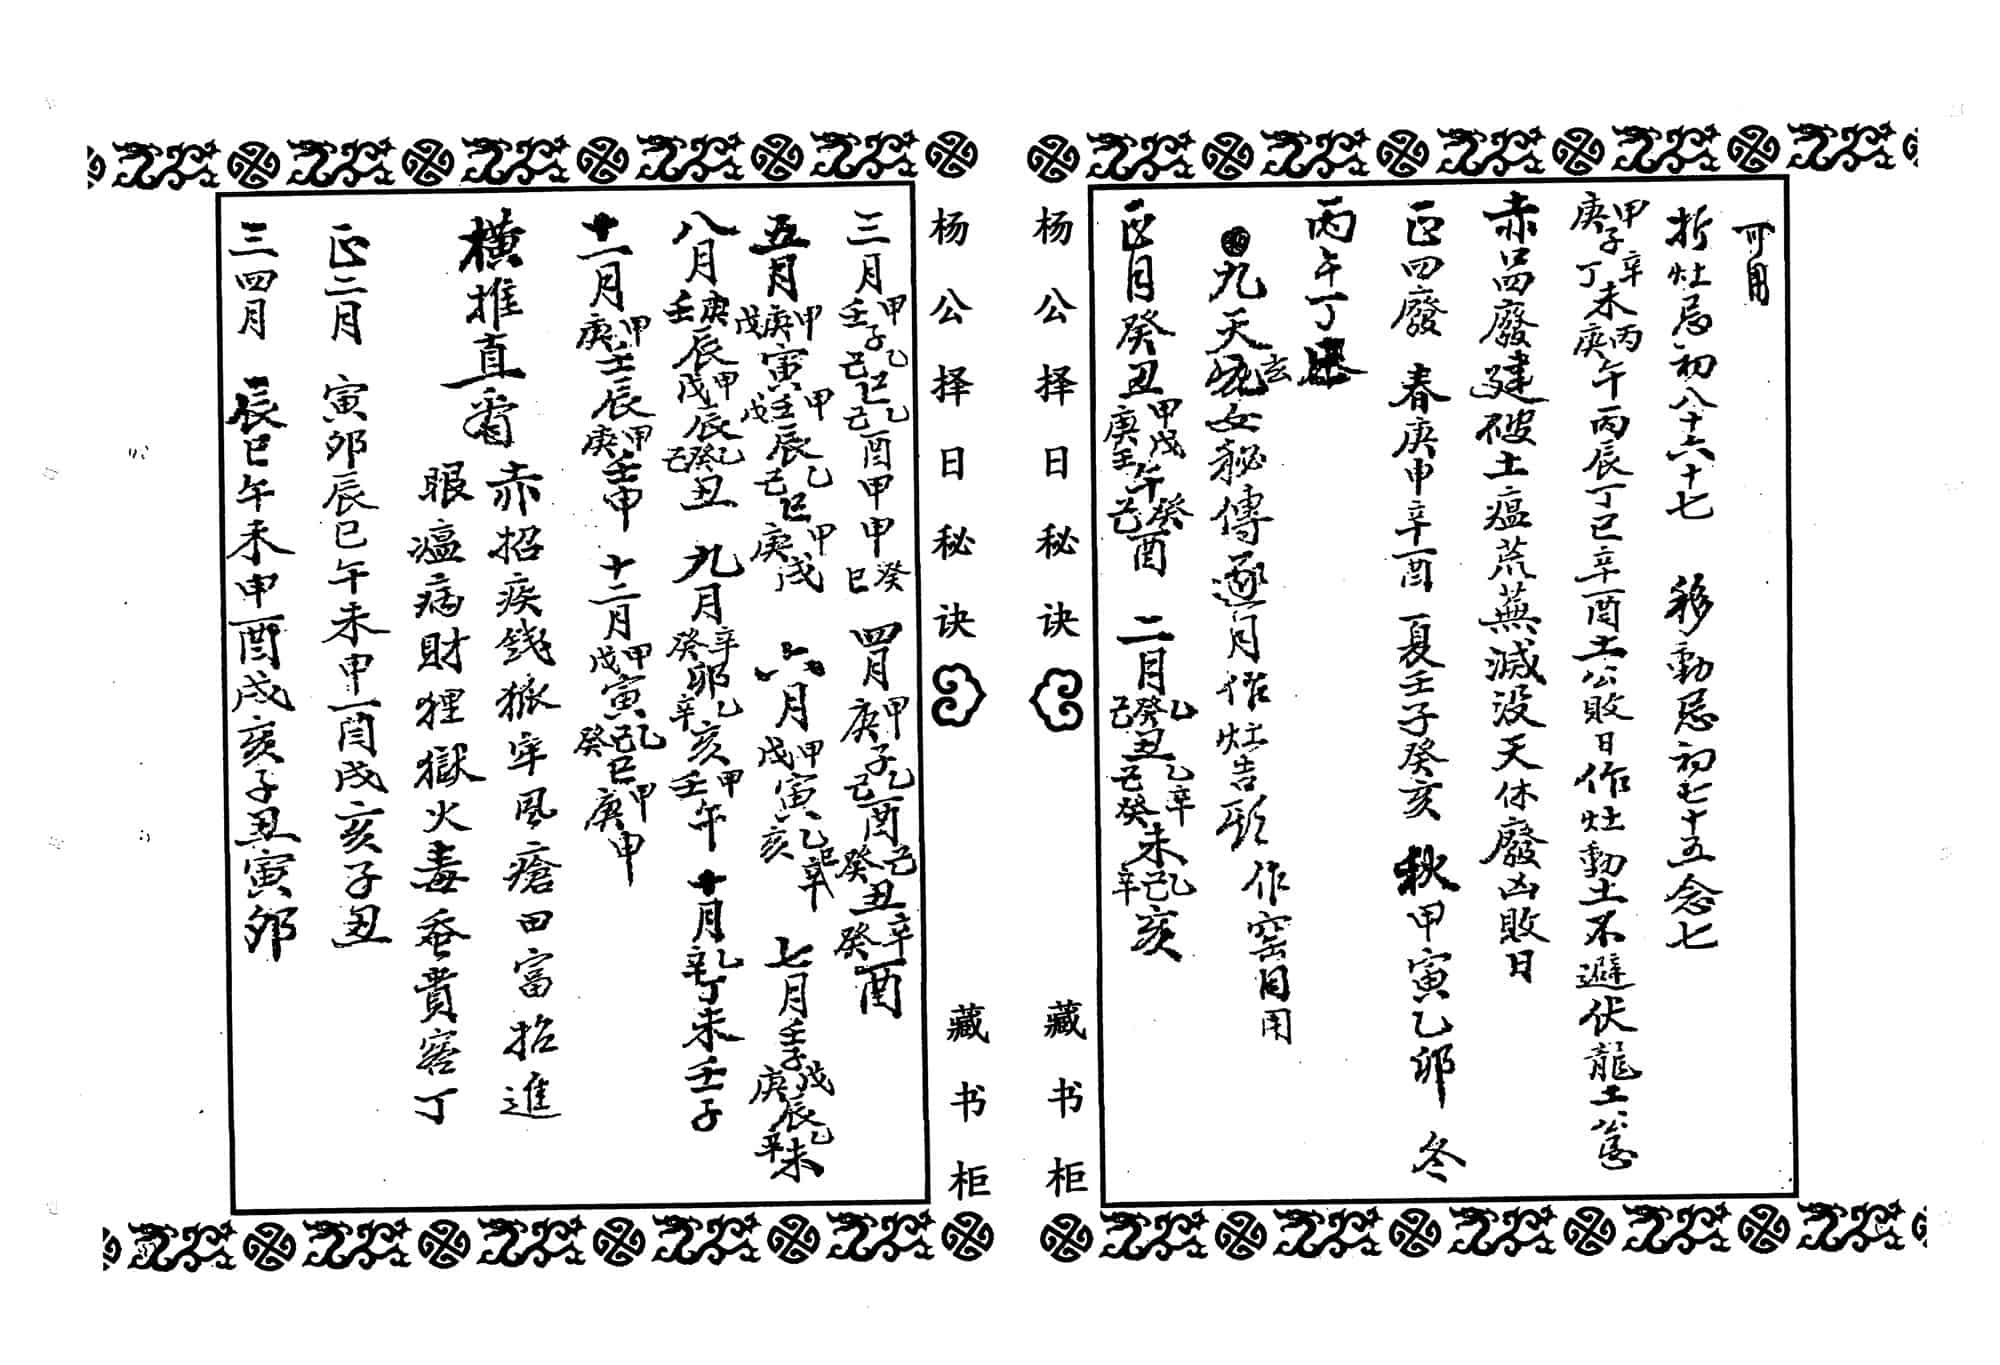 可用
拆灶忌初八十六十七 移動忌初七十五念七
甲庚子辛丁未丙庚午丙辰丁巳辛酉土公敗日作灶動土不避伏龍土
赤口四廢建破土瘟荒蕪滅没天休廢凶敗日
正四廢 春庚申辛酉 夏壬子癸亥 秋甲寅乙卯 冬
丙午丁巳
九天玄女秘傳逐月作灶吉 作窑同用
正月癸丑甲戊庚壬午癸己酉 二月乙癸己丑乙辛己癸未乙己辛亥
杨公择日秘诀
藏书柜
杨公择日秘诀
藏书柜
三月甲壬子乙己巳乙己酉甲申癸巳 四月甲庚子乙己酉己癸丑辛癸酉
五月甲庚戊寅甲壬戊辰乙己巳甲庚戌 六月甲戊寅乙巳辛亥 七月壬子戊庚辰乙辛未
八月庚壬辰甲戊辰乙癸己丑 九月辛癸卯乙辛亥甲壬午 十月乙辛丁未壬子
十一月甲庚壬辰甲庚壬申 十二月甲戊寅乙己癸巳甲庚申
橫推直看 赤招疾錢狼牢風瘡田富招進
眼瘟病財狸獄火毒蚕貴窖丁
正二月 寅卯辰巳午未申酉戌亥子丑
三四月 辰巳午未申酉戌亥子丑寅卯